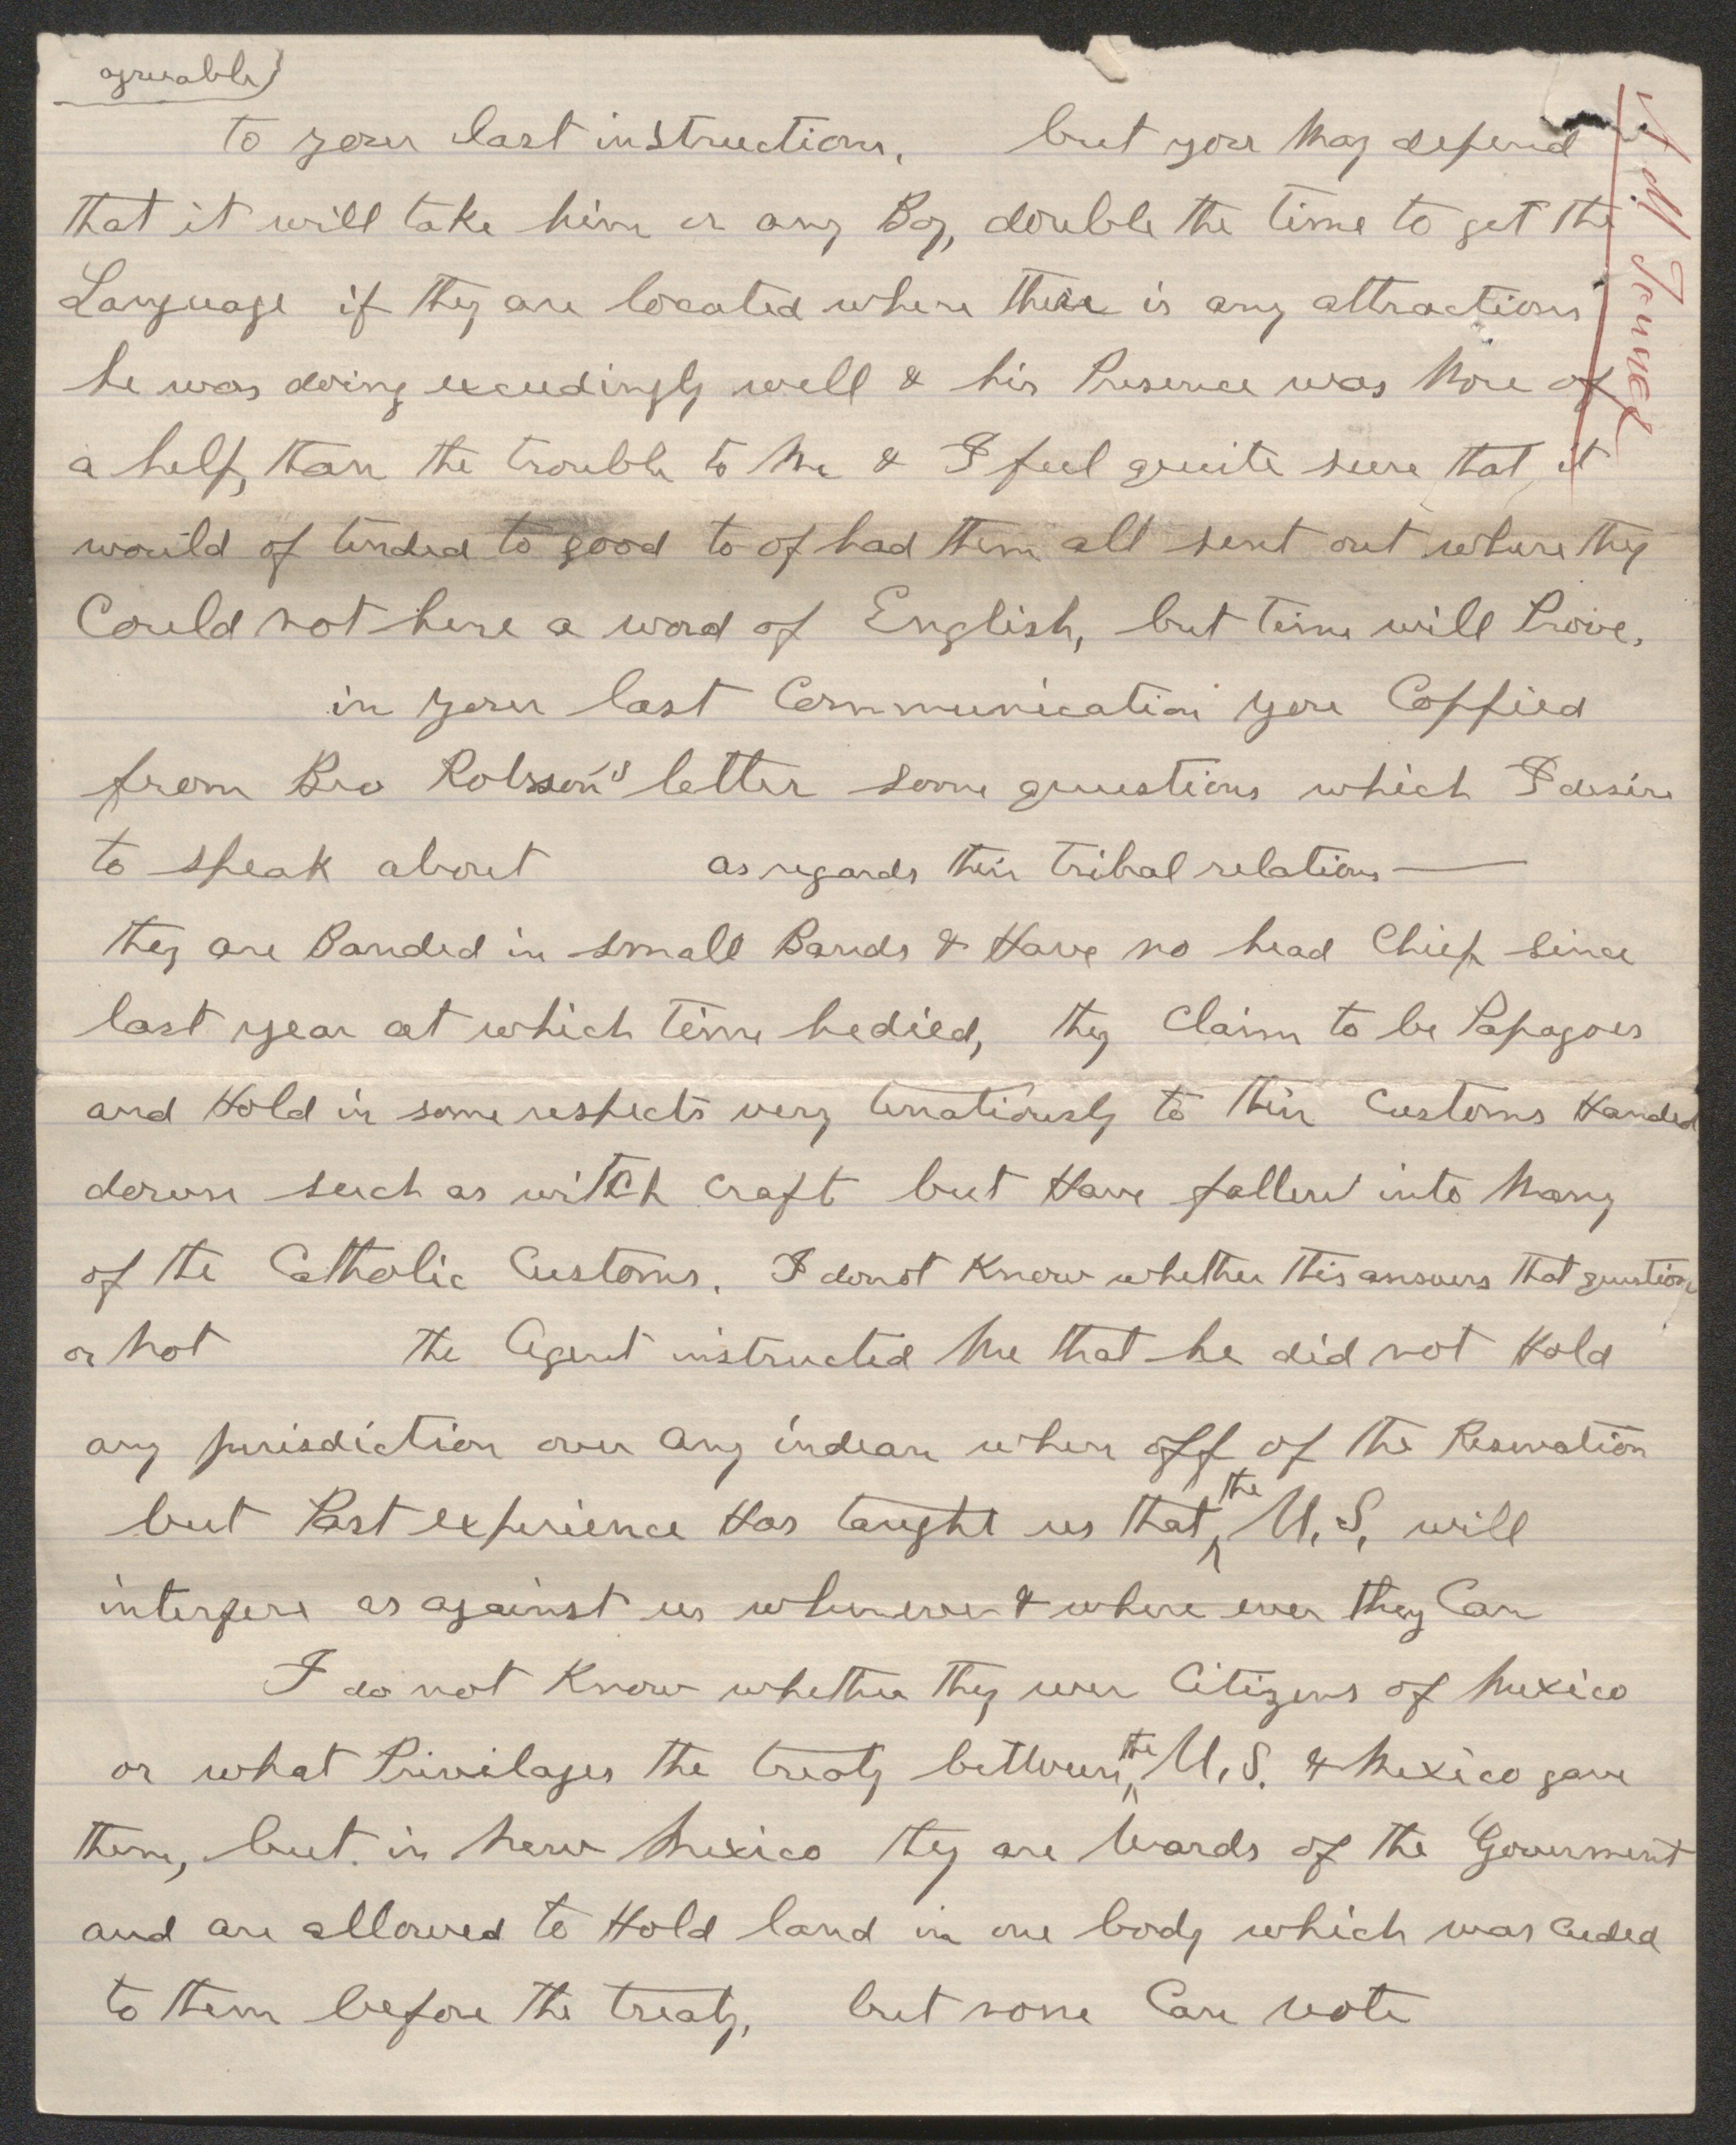 agreeable)
to your last instructions. but you May depend
that it will take him or any Boy, double the time to get the
Language if they are located where there is any attractions
he was doing exceedingly well & his Presence was More of
a help, than the trouble to Me & I feel quite sure that it
would of tended to good to of had them all sent out where they
Could not here a word of English, but time will Prove.
in your last Communication you Coppied
from Bro Robson's letter some questions which I desire
to speak about as regards their tribal relations —
they are Banded in small Bands & Have no head Chief since
last year at which time he died, they Claim to be Papagoes
and Hold in some respects very tenatiously to their Customs Handed
down such as witch craft but Have fallen into Many
of the Catholic Customs. I do not Know whether this answers that question
or Not the Agent instructed Me that he did not Hold
any jurisdiction over any indean when off of the Reservation
but Past experience Has taught us that the U.S. will
interfere as against us whenever & where ever they Can
I do not Know whether they wer Citizens of Mexico
or what Privilages the treaty between the U.S. & Mexico gave
them, but in New Mexico they are Wards of the Goverment
and are allowed to Hold land in one body which was ceded
to them before the treaty, but none Can vote
A M Tenney